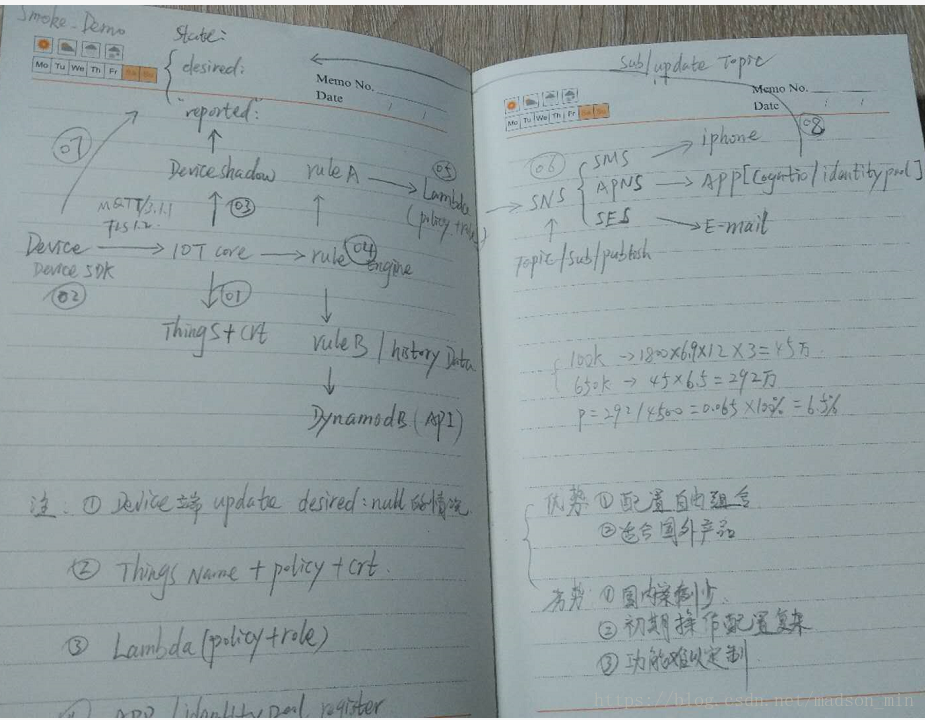 Smoke-Demo
state:
desired:
Mo Tu We Th Fr Sa Su
Memo No.
Date / /
"reported:
07
Device shadow
rule A
05
Lambda
(policy + role)
MQTT/3.1.1
TLS1.2
03
Device
IOT core
rule engine
04
Device SDK
02
01
Things + crt
rule B / history Data
DynamodB (API)
注: ① Device端 update desired:null的情况
② Things Name + policy + crt.
③ Lambda (policy+role)
④ APP / identity pool register
sub/update Topic
Memo No.
Date / /
Mo Tu We Th Fr Sa Su
08
06
SMS
iphone
SNS
APNS
APP [Cognito / identity pool]
SES
E-mail
Topic/sub/publish
100k → 1800×6.9×12×3=45万
650k → 45×6.5=292万
P=292/4500=0.065×100%=6.5%
优势 ① 配置自由组合
② 适合国外产品
劣势 ① 国内案例少
② 初期操作配置复杂
③ 功能难以定制
https://blog.csdn.net/madson_min